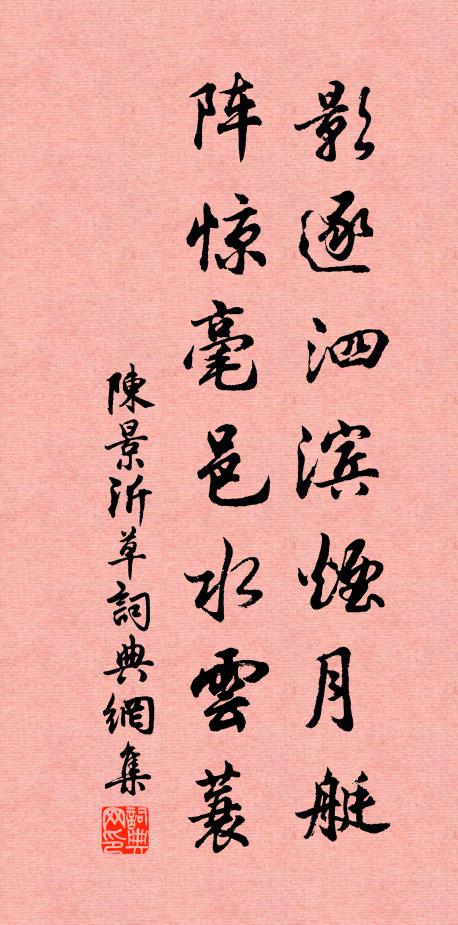 影逐泗滨煙月艇
阵惊毫邑水雲蓑
陳景沂草詞典網集
詞典网印